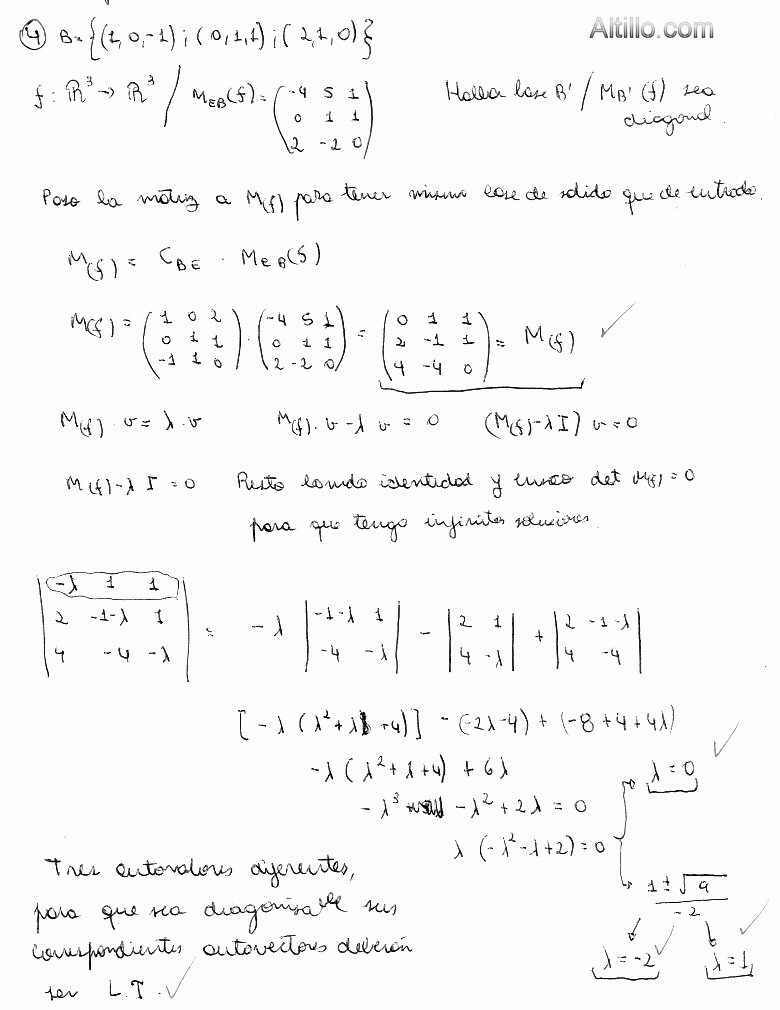 Altillo.com
④ B = {(1,0,-1) ; (0,1,1) ; (2,1,0)}
f : ℝ³ → ℝ³ / M_EB(f) = (-4 5 1 / 0 1 1 / 2 -2 0) Hallar base B' / M_B'(f) sea diagonal.
Paso la matriz a M(f) para tener misma base de salida que de entrada.
M(f) = C_BE · M_EB(f)
M(f) = (1 0 2 / 0 1 1 / -1 1 0) · (-4 5 1 / 0 1 1 / 2 -2 0) = (0 1 1 / 2 -1 1 / 4 -4 0) = M(f) ✓
M(f) · v = λ · v M(f) · v - λ v = 0 (M(f) - λ I) v = 0
M(f) - λ I = 0 Resto lambda identidad y busco det M(f) = 0
para que tenga infinitas soluciones.
|-λ 1 1 / 2 -1-λ 1 / 4 -4 -λ| = -λ |-1-λ 1 / -4 -λ| - |2 1 / 4 -λ| + |2 -1-λ / 4 -4|
[-λ (λ² + λ + 4)] - (-2λ-4) + (-8+4+4λ)
-λ (λ² + λ + 4) + 6λ
λ = 0 ✓
-λ³ - λ² + 2λ = 0
λ (-λ² - λ + 2) = 0
1 ± √9 / -2 ✓
λ = -2 ✓ λ = 1 ✓
Tres autovalores diferentes,
para que sea diagonizable sus
correspondientes autovectores deberán
ser L.I. ✓